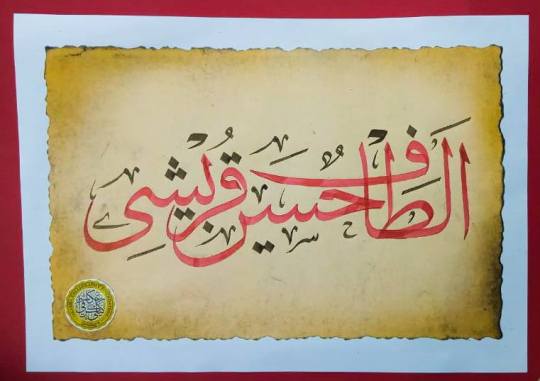 الطاف حسین قریشی